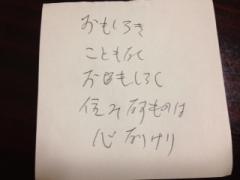 おもしろき
こともなく
おもしろく
住みなすものは
心なりけり